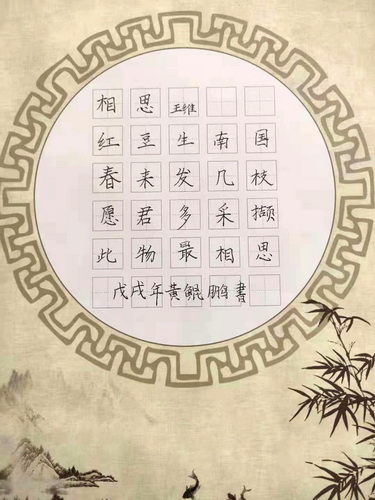 相思 王维
红豆生南国
春来发几枝
愿君多采撷
此物最相思
戊戌年黄鲲鹏書